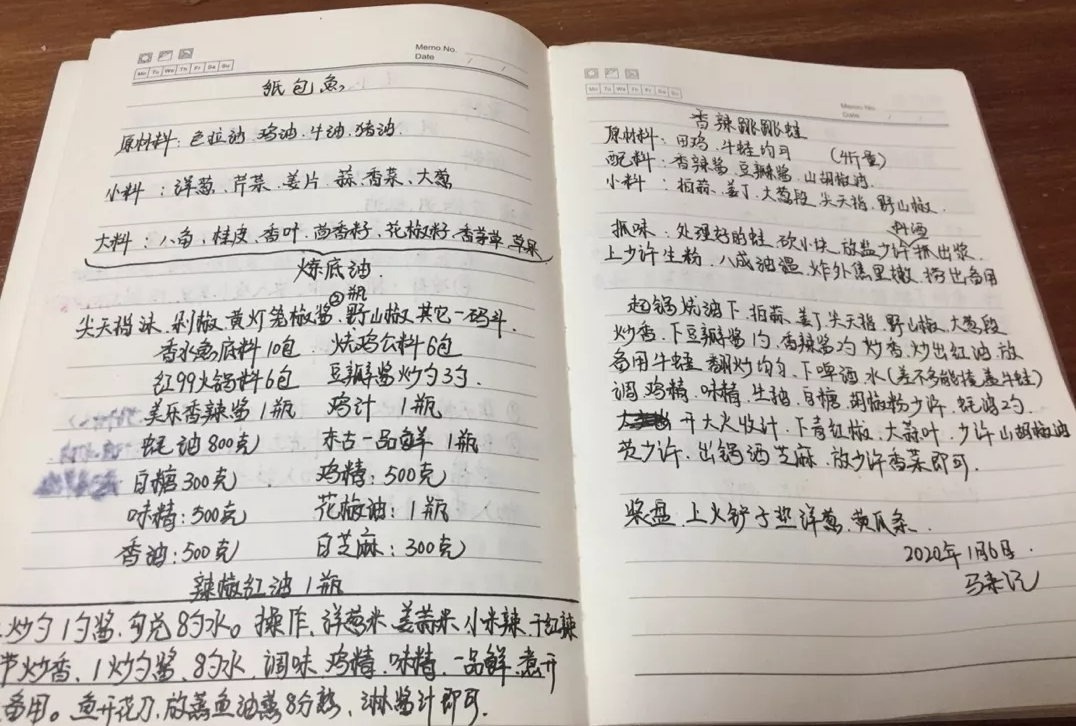 Memo No.
Date / /
Mo Tu We Th Fr Sa Su
纸包鱼
原材料：色拉油、鸡油、牛油、猪油.
小料：洋葱、芹菜、姜片、蒜、香菜、大葱
大料：八角、桂皮、香叶、茴香籽、花椒籽、香茅草、草果
炼底油.
②瓶
尖天椒沫、剁椒、黄灯笼椒酱、野山椒、其它一码斗.
香水鱼底料10包 烧鸡公料6包
红99火锅料6包 豆瓣酱炒勺3勺.
美乐香辣酱1瓶 鸡汁1瓶
蚝油800克 东古一品鲜1瓶
白糖300克 鸡精：500克
味精：500克 花椒油：1瓶
香油：500克 白芝麻：300克
辣椒红油1瓶
炒勺1勺酱，勾兑8勺水。操作、洋葱米、姜蒜米、小米辣、干红辣
节炒香、1炒勺酱、8勺水、调味、鸡精、味精、一品鲜、煮开
备用。鱼开花刀、放蒸鱼油蒸8分熟、淋酱汁即可.
Mo Tu We Th Fr Sa Su
Memo No.
Date / /
香辣跳跳蛙
原材料：田鸡、牛蛙均可 (4斤量)
配料：香辣酱、豆瓣酱、山胡椒油.
小料：拍蒜、姜丁、大葱段、尖天椒、野山椒.
料酒
抓味：处理好的蛙、砍小块、放盐少许抓出浆.
上少许生粉、八成油温、炸外焦里嫩、捞出备用
起锅烧油下、拍蒜、姜丁、尖天椒、野山椒、大葱段
炒香、下豆瓣酱1勺、香辣酱2勺炒香、炒出红油放
备用牛蛙、翻炒均匀、下啤酒、水(差不多能掩盖牛蛙)
调鸡精、味精、生抽、白糖、胡椒粉少许、蚝油2勺.
开大火收汁、下青红椒、大蒜叶、少许山胡椒油
芡少许、出锅洒芝麻、放少许香菜即可.
装盘、上火铲子垫洋葱、黄瓜条.
2020年1月6日.